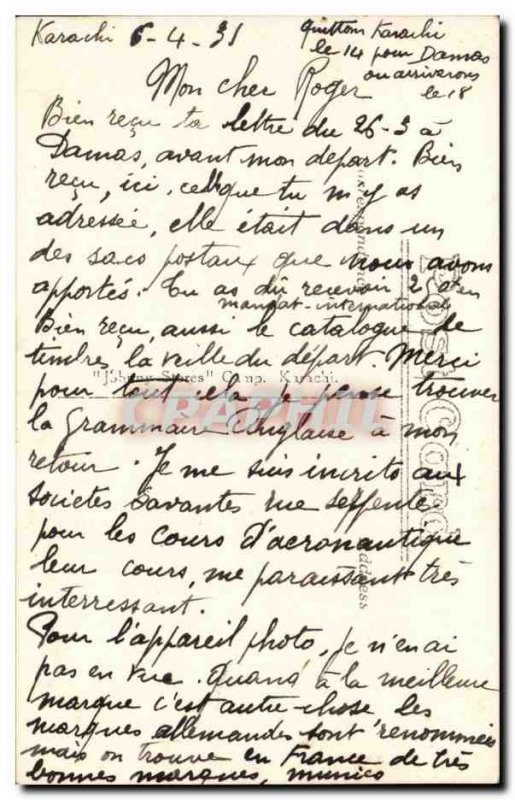 Karachi 6-4.31
quittons Karachi
le 14 pour Damas
ou arriverons
le 18
Mon cher Roger
Bien reçu ta lettre du 26-3 à
Damas, avant mon depart. Bien
reçu, ici, celle que tu m'y as
adressée, elle était dans un
des sacs postaux que nous avons
apportés. Tu as dû recevoir 2
mandat-international
Bien reçu, aussi le catalogue de
timbres, la veille du départ. Merci
pour tout cela. Je pense trouver
la grammaire Anglaise à mon
retour. Je me suis incrits aux
societes savantes rue serpente
pour les cours d'aeronautique
leur cours, me paraissant très
interressant.
Pour l'appareil photo, je n'en ai
pas en vue. Quand à la meilleure
marque c'est autre-chose les
marques allemandes sont renommées
mais on trouve en France de très
bonnes marques, munies
"Johnny Stores" Camp. Karachi.
POST CARD
Correspondence
Address
CPAPHIL